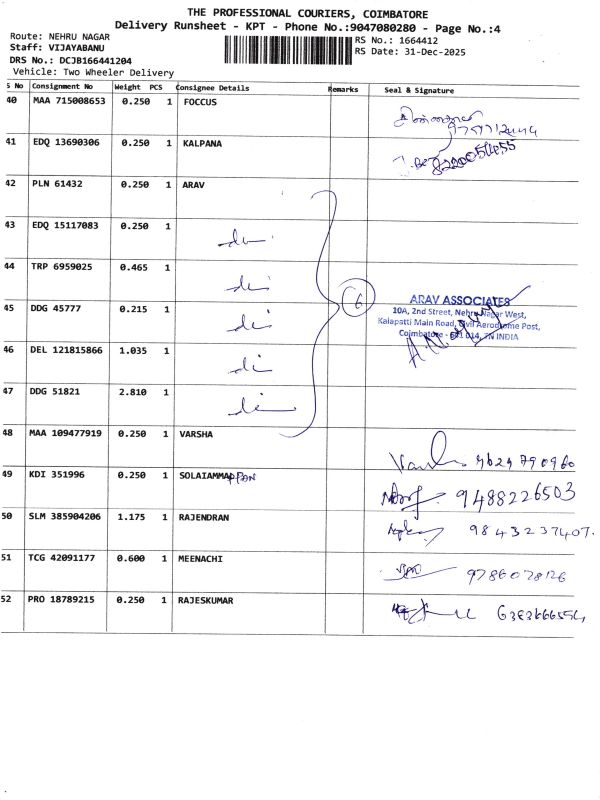 THE PROFESSIONAL COURIERS, COIMBATORE
Delivery Runsheet - KPT - Phone No.:9047080280 - Page No.:4
Route: NEHRU NAGAR
RS No.: 1664412
Staff: VIJAYABANU
RS Date: 31-Dec-2025
DRS No.: DCJB166441204
Vehicle: Two Wheeler Delivery
S No Consignment No Weight PCS Consignee Details Remarks Seal & Signature
40 MAA 715008653 0.250 1 FOCCUS
41 EDQ 13690306 0.250 1 KALPANA
42 PLN 61432 0.250 1 ARAV
43 EDQ 15117083 0.250 1
44 TRP 6959025 0.465 1
6
ARAV ASSOCIATES
10A, 2nd Street, Nehru Nagar West,
Kalapatti Main Road, Civil Aerodrome Post,
Coimbatore - 641 014, TN INDIA
45 DDG 45777 0.215 1
46 DEL 121815866 1.035 1
47 DDG 51821 2.810 1
48 MAA 109477919 0.250 1 VARSHA
49 KDI 351996 0.250 1 SOLAIAMMAPPAN 9488226503
50 SLM 385904206 1.175 1 RAJENDRAN 9843237407.
51 TCG 42091177 0.600 1 MEENACHI 9786078126
52 PRO 18789215 0.250 1 RAJESKUMAR